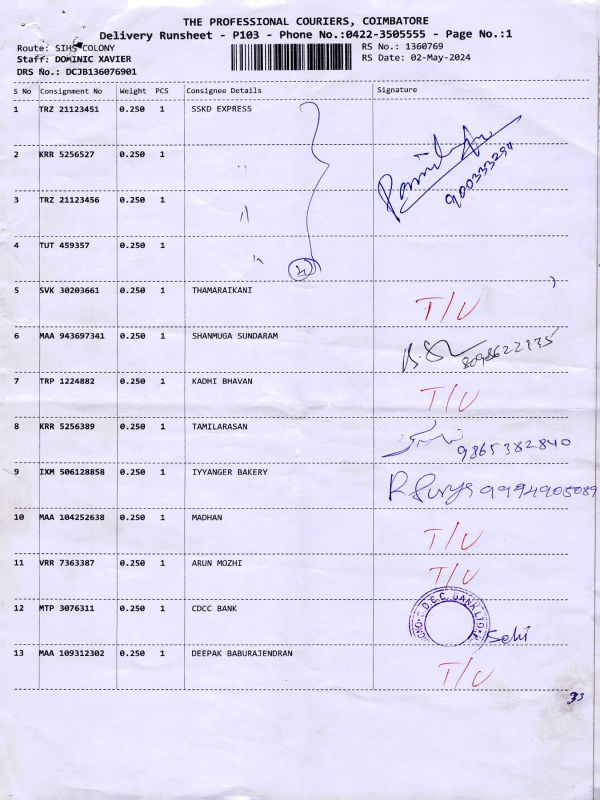 THE PROFESSIONAL COURIERS, COIMBATORE
Delivery Runsheet - P103 - Phone No.:0422-3505555 - Page No.:1
Route: SIHS COLONY
Staff: DOMINIC XAVIER
DRS No.: DCJB136076901
RS No.: 1360769
RS Date: 02-May-2024
S No Consignment No Weight PCS Consignee Details Signature
1 TRZ 21123451 0.250 1 SSKD EXPRESS
2 KRR 5256527 0.250 1 "
3 TRZ 21123456 0.250 1 "
4 TUT 459357 0.250 1 "
5 SVK 30203661 0.250 1 THAMARAIKANI T/U
6 MAA 943697341 0.250 1 SHANMUGA SUNDARAM 8098622135
7 TRP 1224882 0.250 1 KADHI BHAVAN T/U
8 KRR 5256389 0.250 1 TAMILARASAN 9865382840
9 IXM 506128858 0.250 1 IYYANGER BAKERY R Surya 9994905089
10 MAA 104252638 0.250 1 MADHAN T/U
11 VRR 7363387 0.250 1 ARUN MOZHI T/U
12 MTP 3076311 0.250 1 CDCC BANK C.D.C.C. BANK LTD
13 MAA 109312302 0.250 1 DEEPAK BABURAJENDRAN T/U